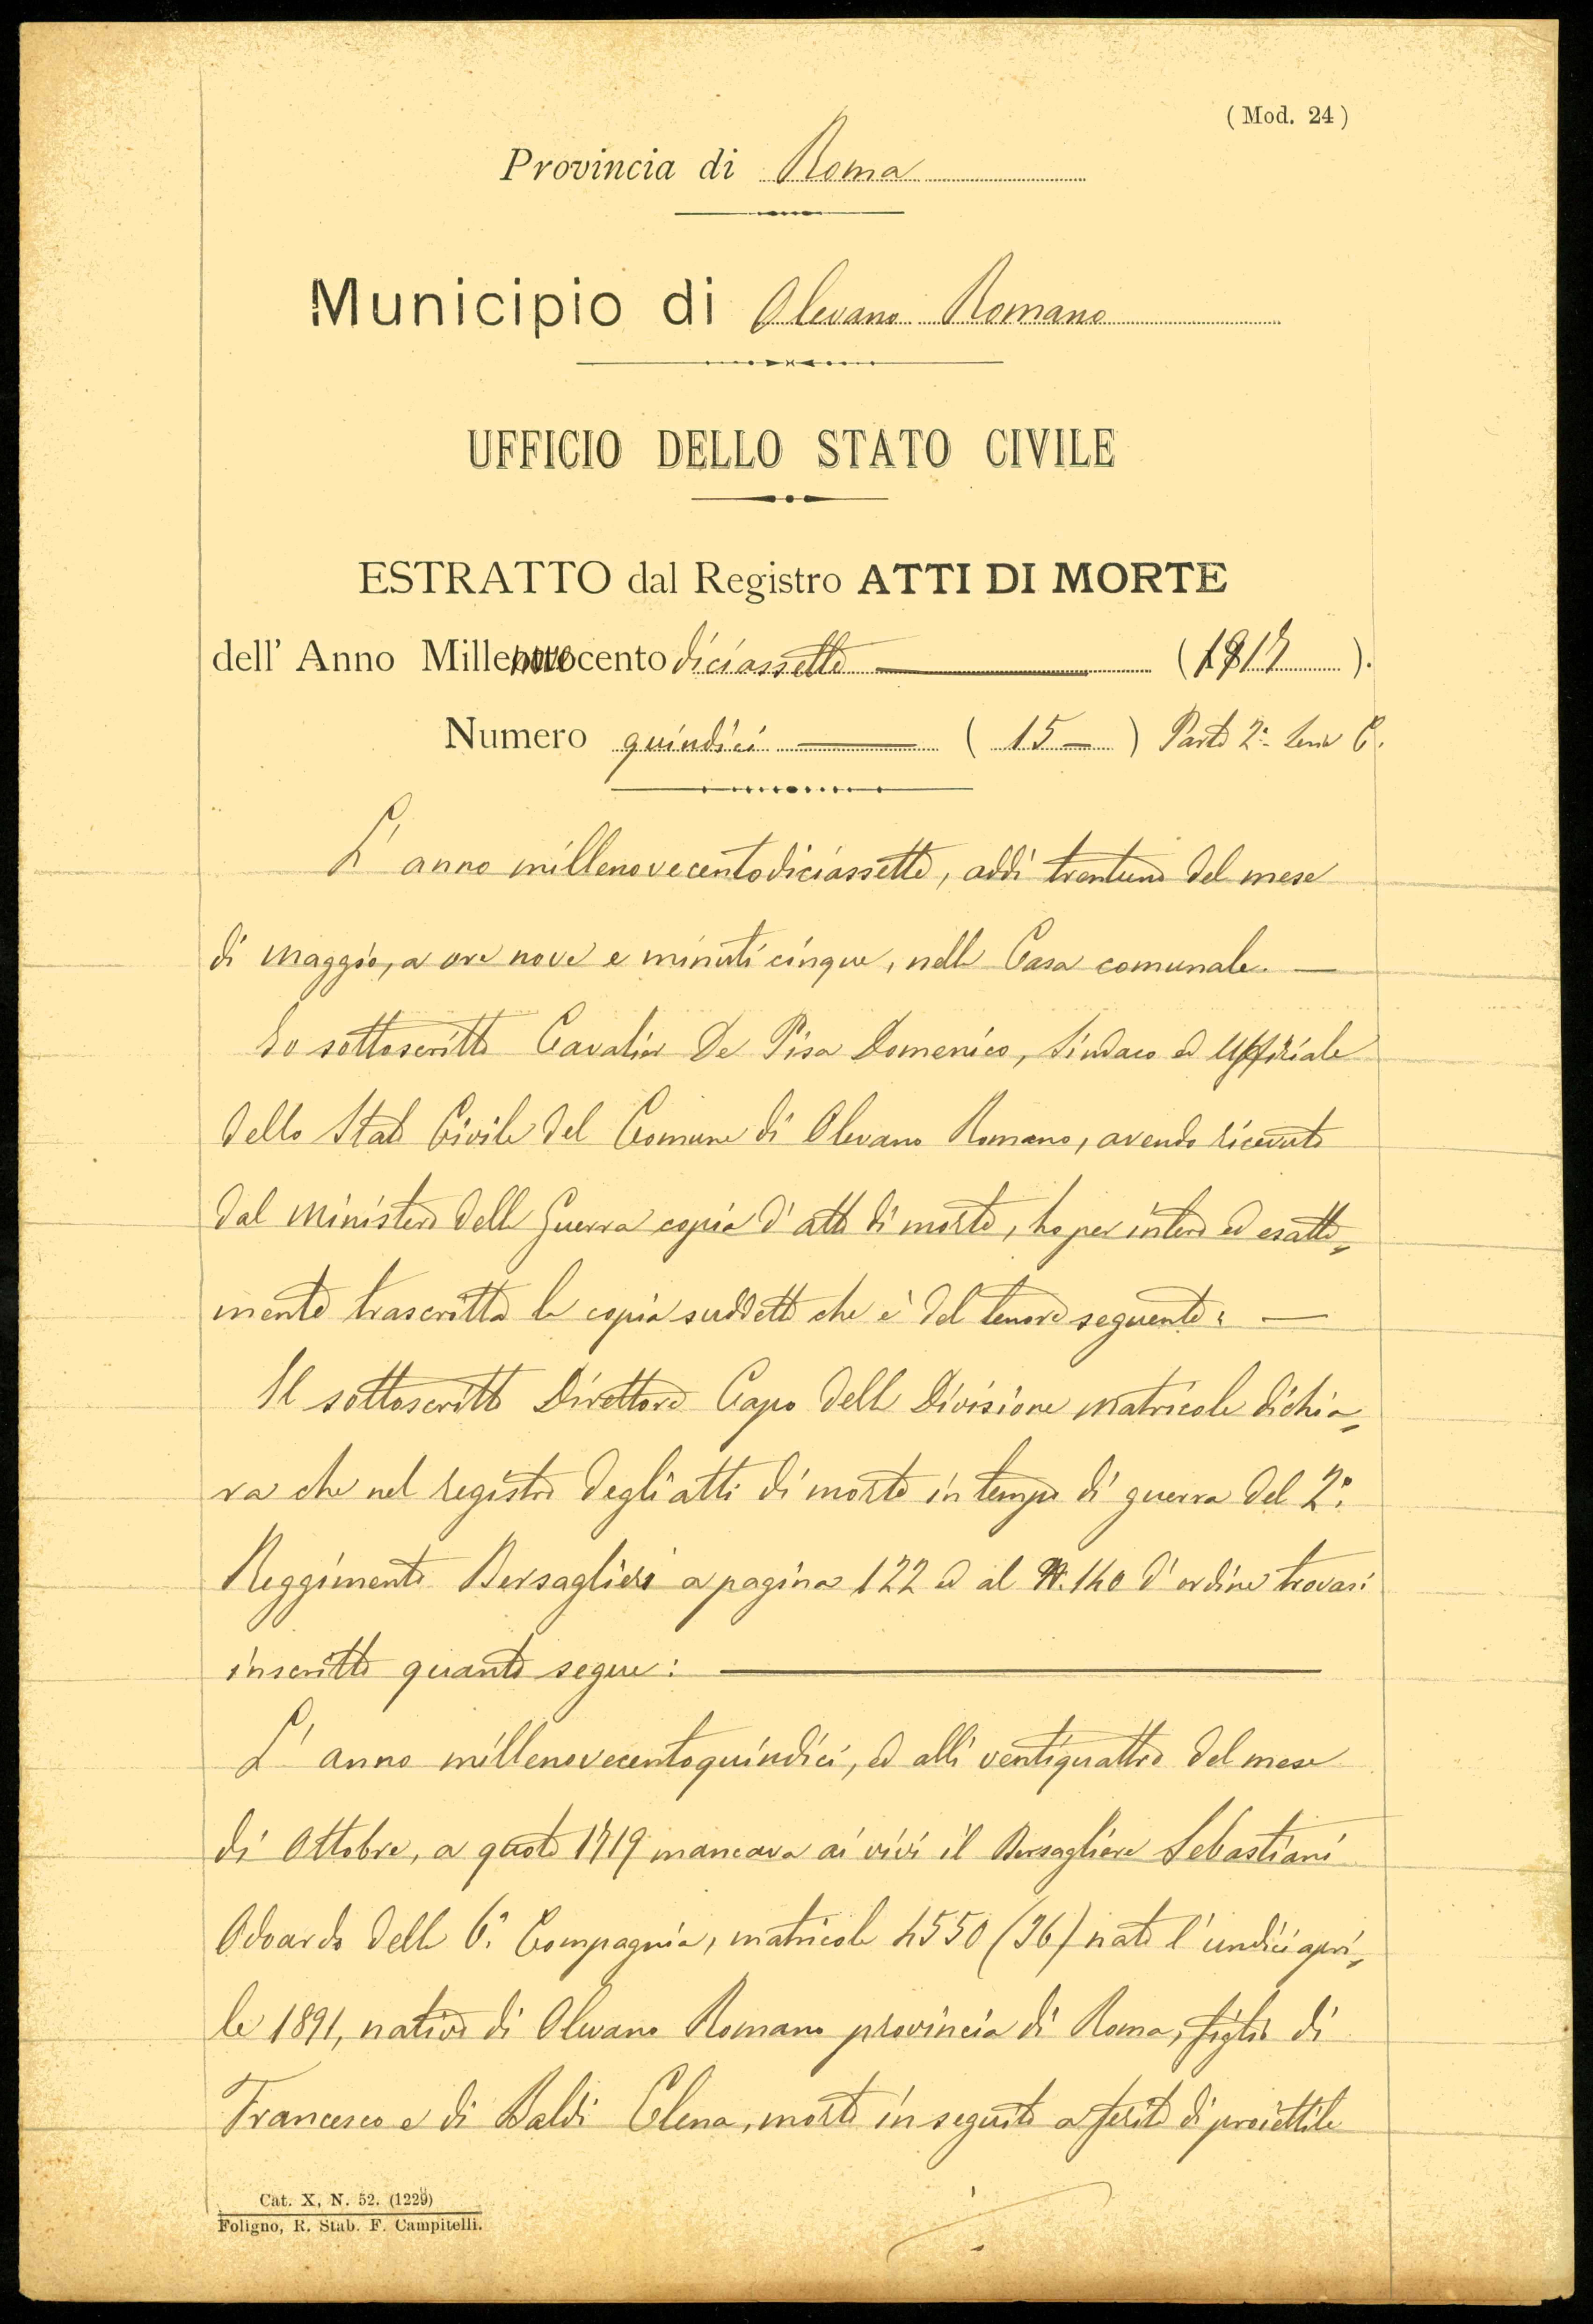 ( Mod. 24 )
Provincia di Roma
Municipio di Olevano Romano
UFFICIO DELLO STATO CIVILE
ESTRATTO dal Registro ATTI DI MORTE
dell' Anno Millenovecento diciassette (1917).
Numero quindici ( 15 ) Parte 2ª Serie C.
L' anno millenovecentodiciassette, addì trentuno del mese
di Maggio, a ore nove e minuti cinque, nella Casa comunale. —
Io sottoscritto Cavalier De Pisa Domenico, Sindaco ed Uffiziale
dello Stato Civile del Comune di Olevano Romano, avendo ricevuto
dal Ministero della Guerra copia d' atto di morte, ho per intero ed esatta=
mente trascritta la copia suddetta che è del tenore seguente: —
Il sottoscritto Direttore Capo della Divisione Matricole dichia=
ra che nel registro degli atti di morte in tempo di guerra del 2°.
Reggimento Bersaglieri a pagina 122 ed al N. 140 d' ordine trovasi
inscritto quanto segue:
L' anno millenovecentoquindici, ed alli ventiquattro del mese
di Ottobre, a quota 1719 mancava ai vivi il Bersagliere Sebastiani
Odoardo della 6ª Compagnia, matricola 4550 (36) nato l' undici apri=
le 1891, nativo di Olevano Romano provincia di Roma, figlio di
Francesco e di Baldi Elena, morto in seguito a ferita di proiettile
Cat. X, N. 52. (1229)
Foligno, R. Stab. F. Campitelli.